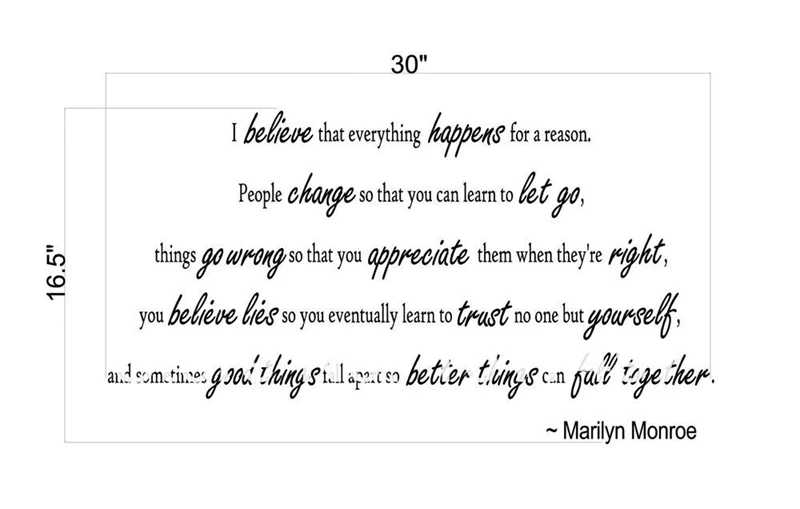 30"
16.5"
I believe that everything happens for a reason.
People change so that you can learn to let go,
things go wrong so that you appreciate them when they're right,
you believe lies so you eventually learn to trust no one but yourself,
and sometimes good things fall apart so better things can fall together.
~ Marilyn Monroe